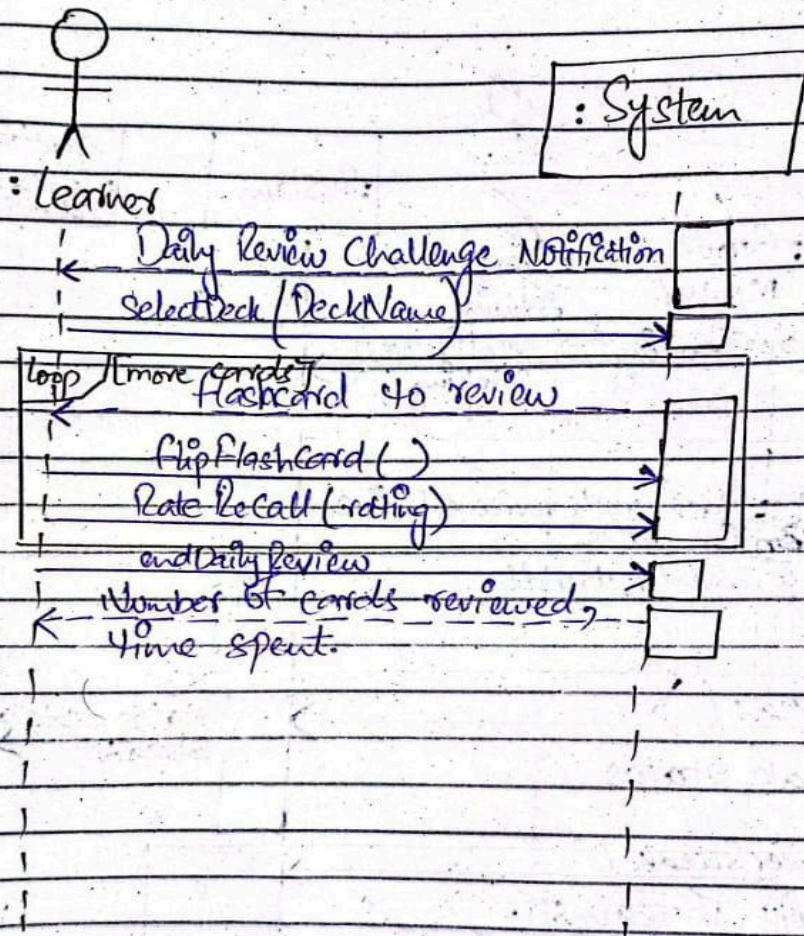 : System
: Learner
Daily Review Challenge Notification
SelectDeck (DeckName)
loop [more cards]
flashcard to review
flipFlashCard ( )
Rate Recall (rating)
endDailyReview
Number of cards reviewed,
time spent.